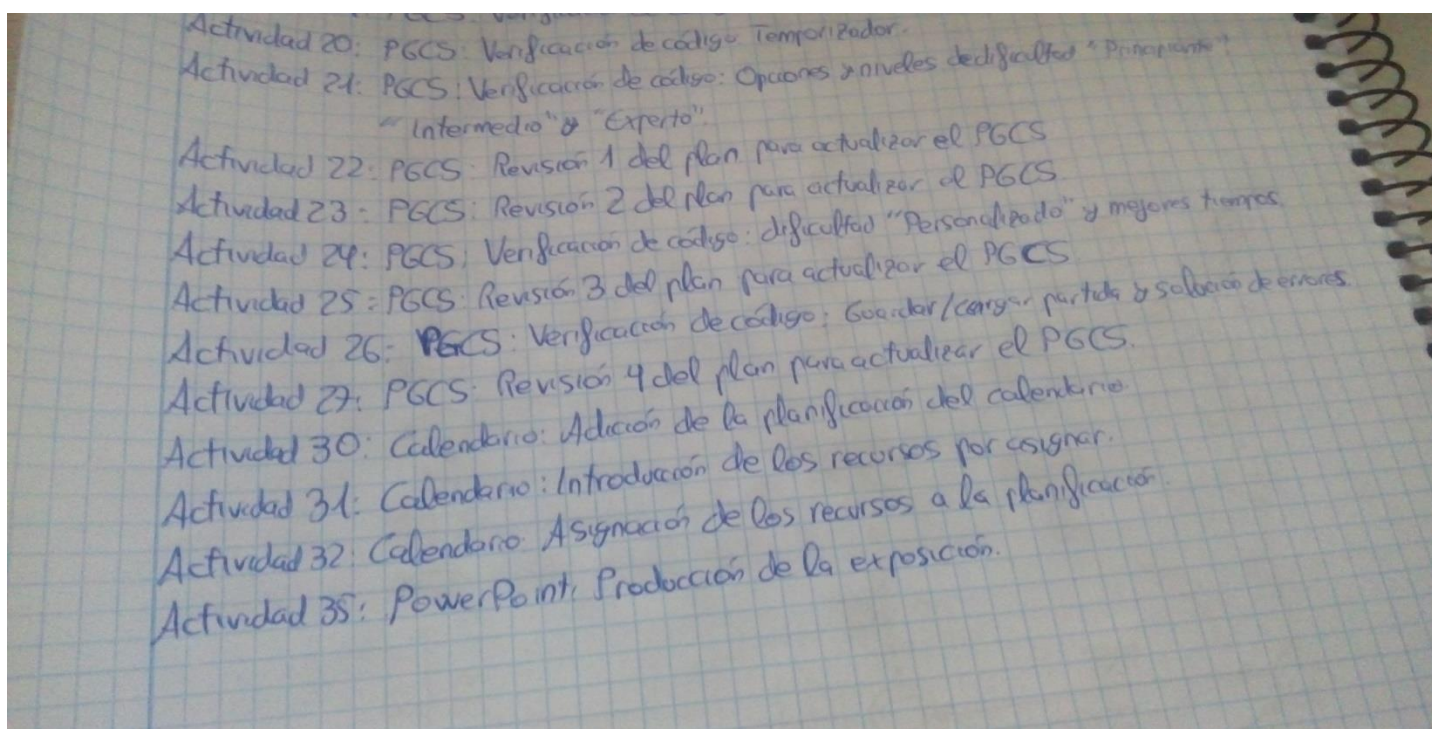 Actividad 20: PGCS: Verificación de código Temporizador.
Actividad 21: PGCS: Verificación de código: Opciones y niveles de dificultad "Principiante"
"Intermedio" y "Experto"
Actividad 22: PGCS: Revisión 1 del plan para actualizar el PGCS
Actividad 23: PGCS: Revisión 2 del plan para actualizar el PGCS
Actividad 24: PGCS: Verificación de código: dificultad "Personalizado" y mejores tiempos.
Actividad 25: PGCS: Revisión 3 del plan para actualizar el PGCS
Actividad 26: PGCS: Verificación de código: Guardar/cargar partida y solución de errores.
Actividad 27: PGCS: Revisión 4 del plan para actualizar el PGCS.
Actividad 30: Calendario: Adición de la planificación del calendario.
Actividad 31: Calendario: Introducción de los recursos por asignar.
Actividad 32: Calendario: Asignación de los recursos a la planificación.
Actividad 35: PowerPoint: Producción de la exposición.